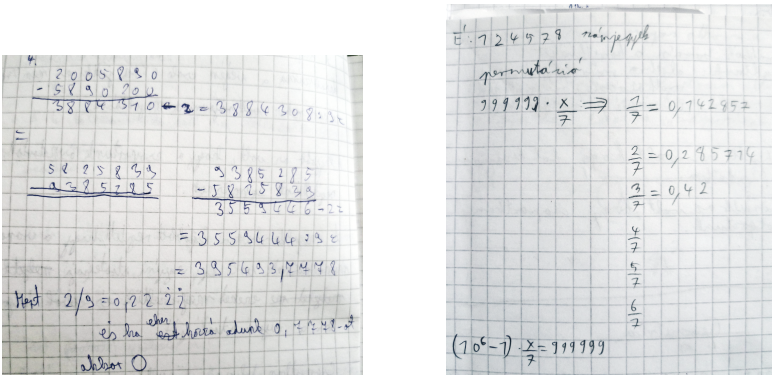 4.
2005890
- 5890200
3884310 - 2 = 3884308
=
5825839
9385285
9385285
- 5825839
3559446 - 2z
= 3559444
= 395493,7778
Mert 2/9 = 0,22 2̇ 2̇
és ha ehhez hozzá adunk 0,7778-at
akkor 0
É: 124578 számjegyek
permutáció
999999 · x/7 ⟹ 1/7 = 0,142857
2/7 = 0,285714
3/7 = 0,42
4/7
5/7
6/7
(10⁶ - 1) · x/7 = 999999